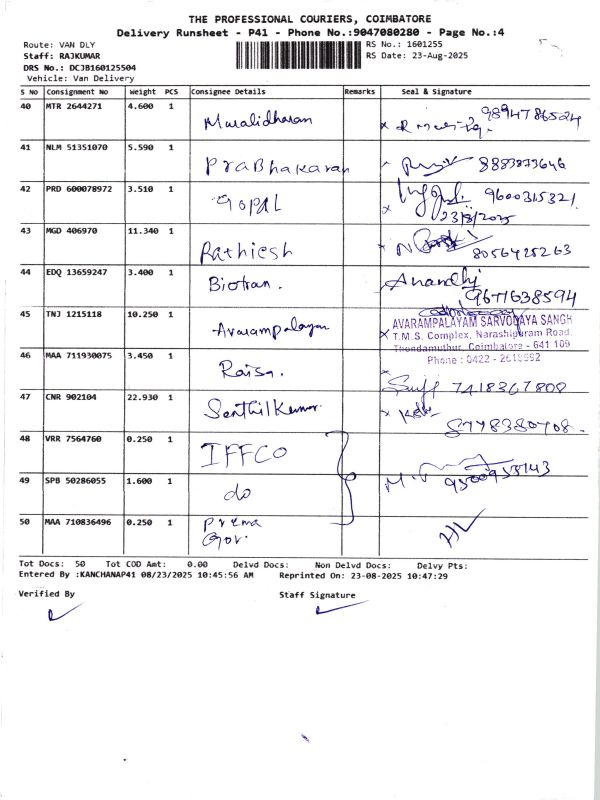 THE PROFESSIONAL COURIERS, COIMBATORE
Delivery Runsheet - P41 - Phone No.:9047080280 - Page No.:4
Route: VAN DLY
RS No.: 1601255
Staff: RAJKUMAR
RS Date: 23-Aug-2025
DRS No.: DCJB160125504
Vehicle: Van Delivery
S No Consignment No Weight PCS Consignee Details Remarks Seal & Signature
40 MTR 2644271 4.600 1 Muralidharan
41 NLM 51351070 5.590 1 PraBhakaran 8883873646
42 PRD 600078972 3.510 1 GOPAL 9600315321
23/8/2025
43 MGD 406970 11.340 1 Rathiesh 8056425263
44 EDQ 13659247 3.400 1 Biotran. Anandhi
9671638594
45 TNJ 1215118 10.250 1 Avarampalayam
AVARAMPALAYAM SARVODAYA SANGH
T.M.S. Complex, Narashipuram Road,
Thondamuthur, Coimbatore - 641 109
Phone : 0422 -
46 MAA 711930075 3.450 1 Raisa. 7418367808
47 CNR 902104 22.930 1 SenthilKumar
8778380708.
48 VRR 7564760 0.250 1 IFFCO
49 SPB 50286055 1.600 1 do
50 MAA 710836496 0.250 1 Prema
Gov.
Tot Docs: 50 Tot COD Amt: 0.00 Delvd Docs: Non Delvd Docs: Delvy Pts:
Entered By :KANCHANAP41 08/23/2025 10:45:56 AM Reprinted On: 23-08-2025 10:47:29
Verified By Staff Signature